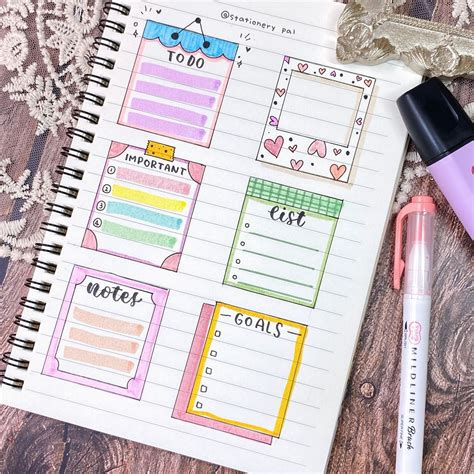 @stationery pal
TO DO
IMPORTANT
1
2
3
4
list
notes
GOALS
MILDLINER Brush